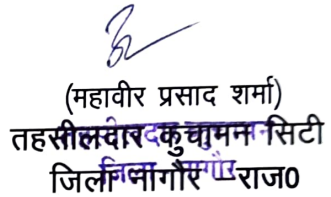 (महावीर प्रसाद शर्मा)
तहसीलदार कुचामन सिटी
जिला नागौर – राज0